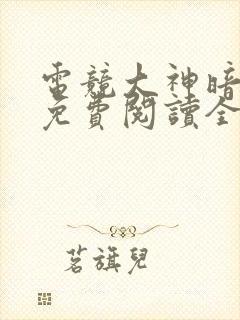 電競大神暗
免費閱讀全
茗旗兒